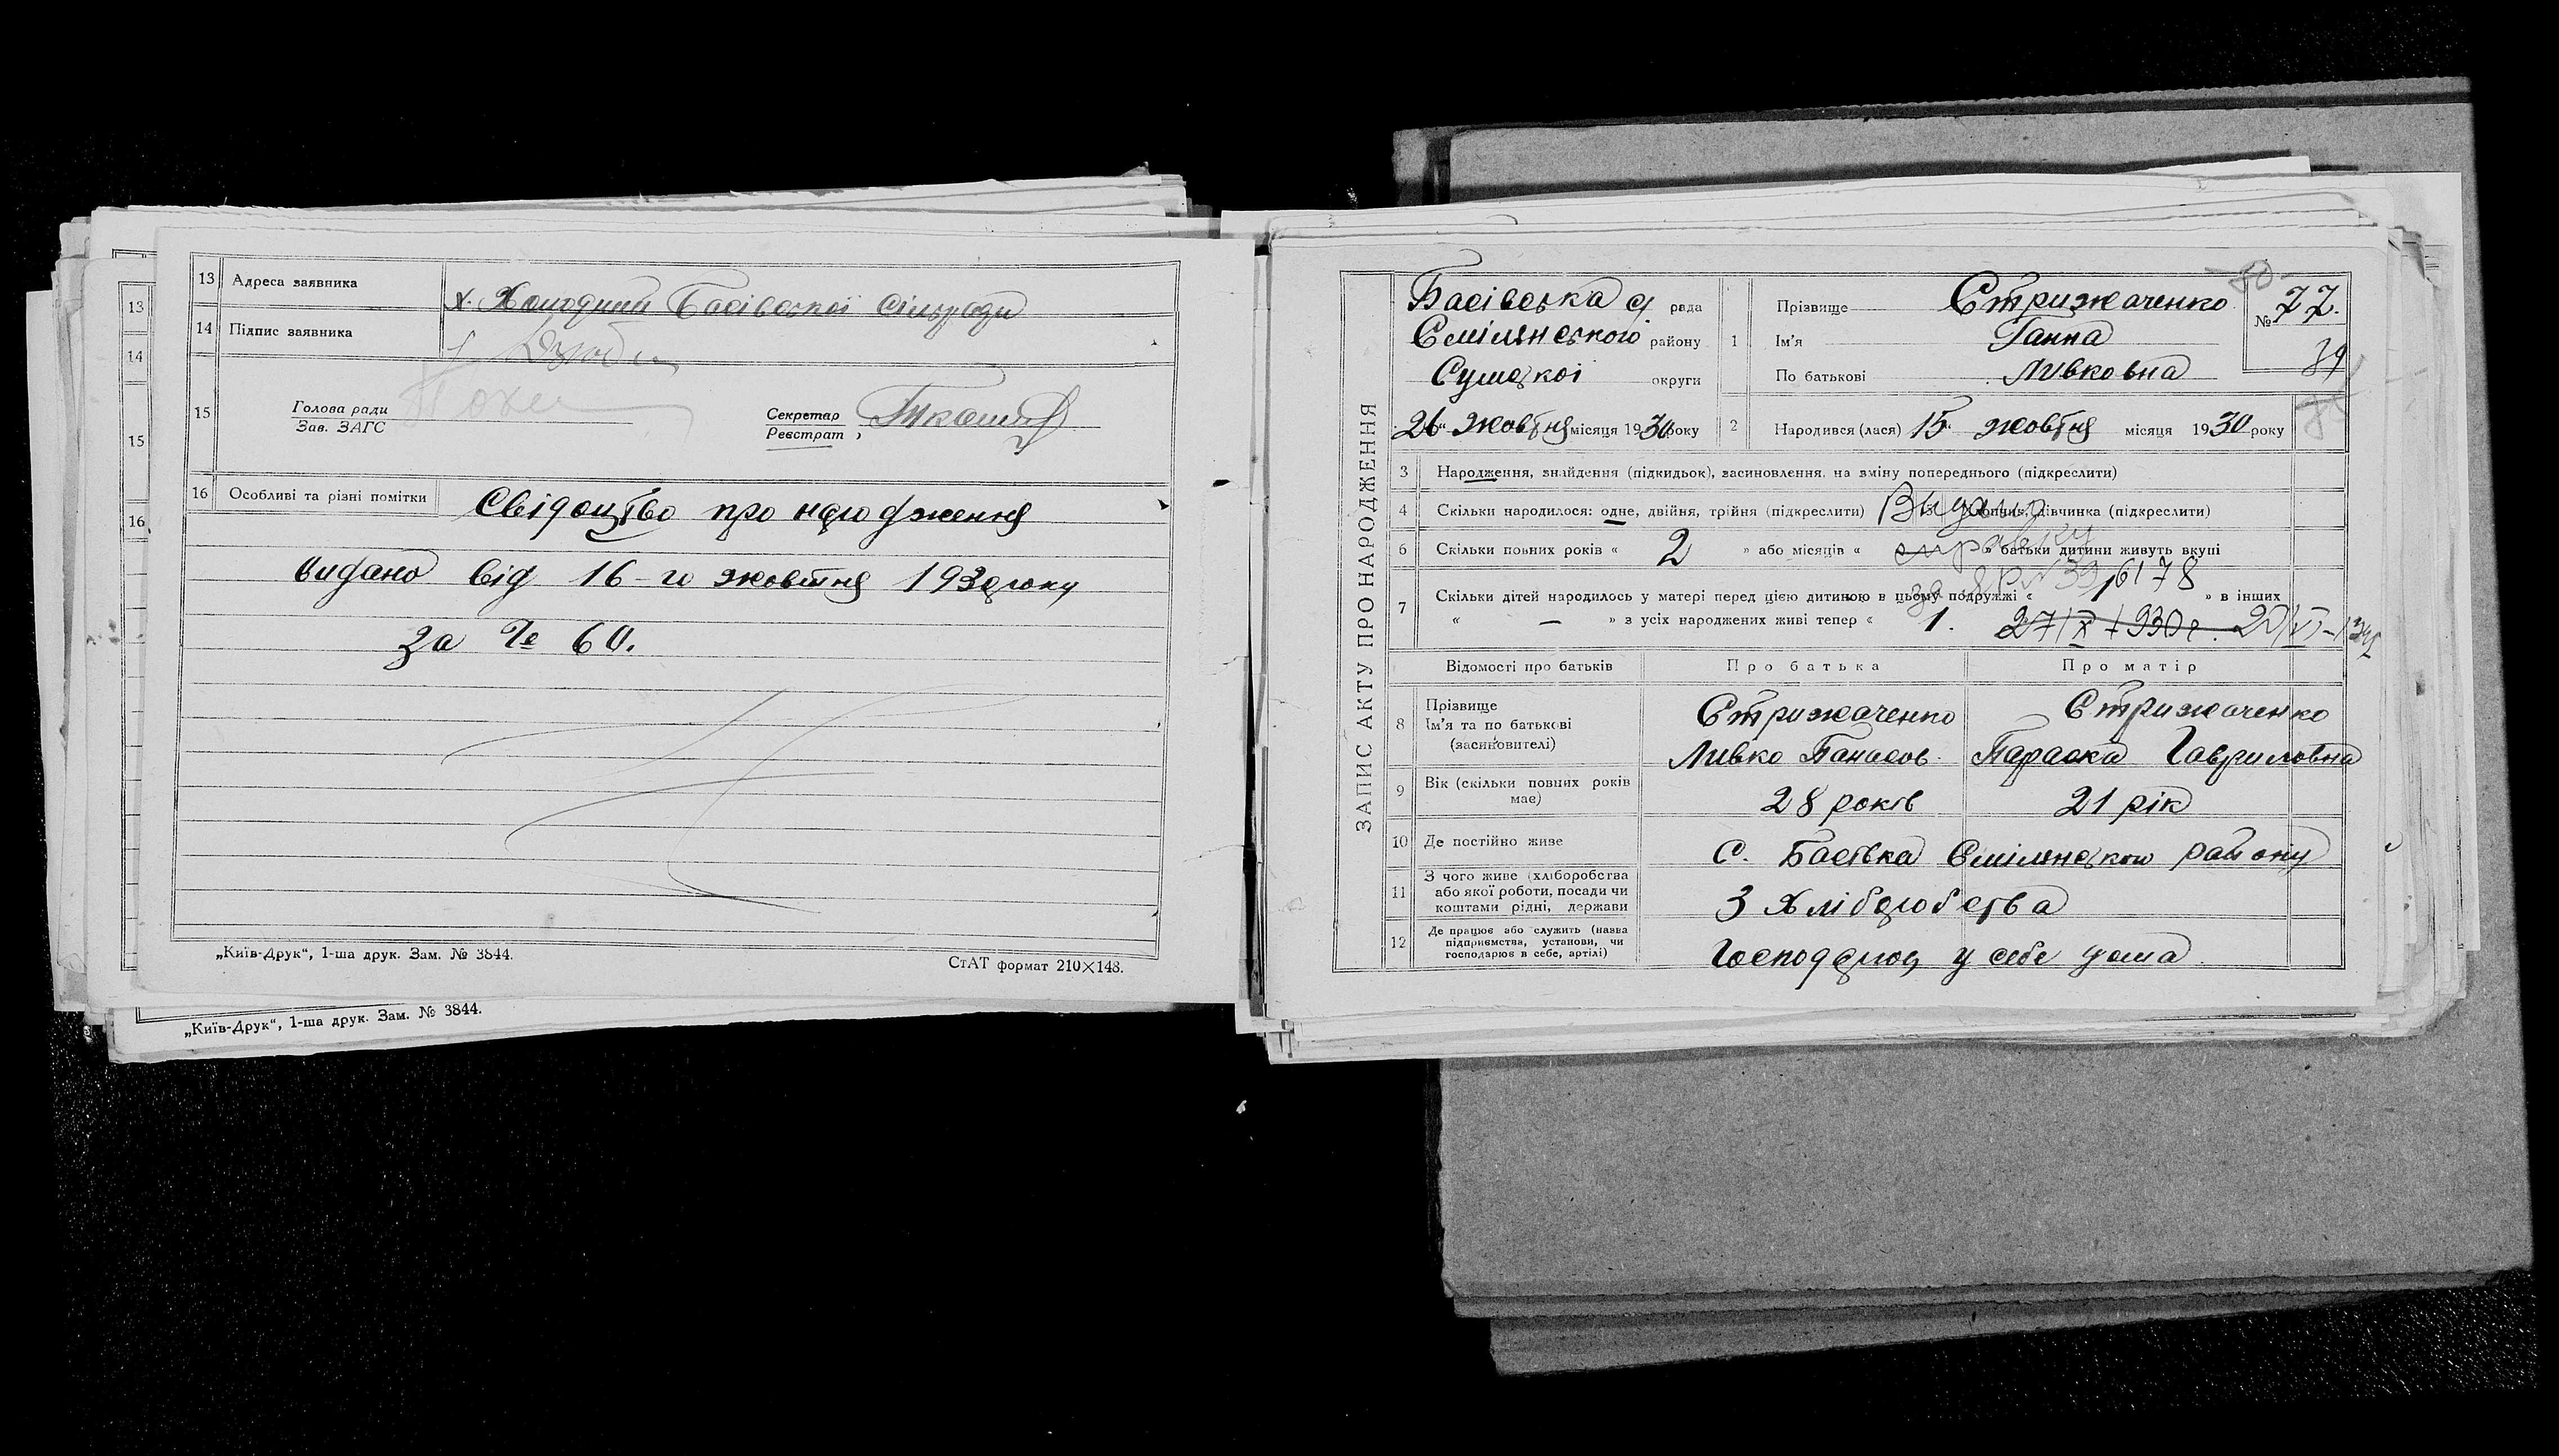 13 Адреса заявника х. Холодний Басівської сільради
14 Підпис заявника
15 Голова ради
Зав. ЗАГС
Секретар
Реєстрат
16 Особливі та різні помітки Свідоцтво про народження
видано від 16-го жовтня 1930 року
за № 60.
„Київ-Друк“, 1-ша друк. Зам. № 3844.
СтАТ формат 210×148.
13
14
15
16
„Київ-Друк“, 1-ша друк. Зам. № 3844.
ЗАПИС АКТУ ПРО НАРОДЖЕННЯ
Басівська с/ рада
Смілянського району
Сумської округи
26 жовтня місяця 1930 року
1 Прізвище Стрижаченко
Ім'я Ганна
По батькові Ливковна
№ 77.
2 Народився (лася) 15 жовтня місяця 1930 року
3 Народження, знайдення (підкидьок), засиновлення, на зміну попереднього (підкреслити)
4 Скільки народилося: одне, двійня, трійня (підкреслити) хлопчик, дівчинка (підкреслити)
Видано
справку
6 Скільки повних років « 2 » або місяців « — » батьки дитини живуть вкупі
7 Скільки дітей народилось у матері перед цією дитиною в цьому подружжі « 1 » в інших
« — » з усіх народжених живі тепер « 1.
Відомості про батьків Про батька Про матір
8 Прізвище
Ім'я та по батькові
(засиновителі)
Стрижаченко
Ливко Панасов.
Стрижаченко
Параска Гавриловна
9 Вік (скільки повних років має) 28 років 21 рік
10 Де постійно живе с. Басівка Смілянського району
11 З чого живе (хліборобства
або якої роботи, посади чи
коштами рідні, держави
З хліборобства
12 Де працює або служить (назва
підприємства, установи, чи
господарює в себе, артілі)
Господарює у себе дома